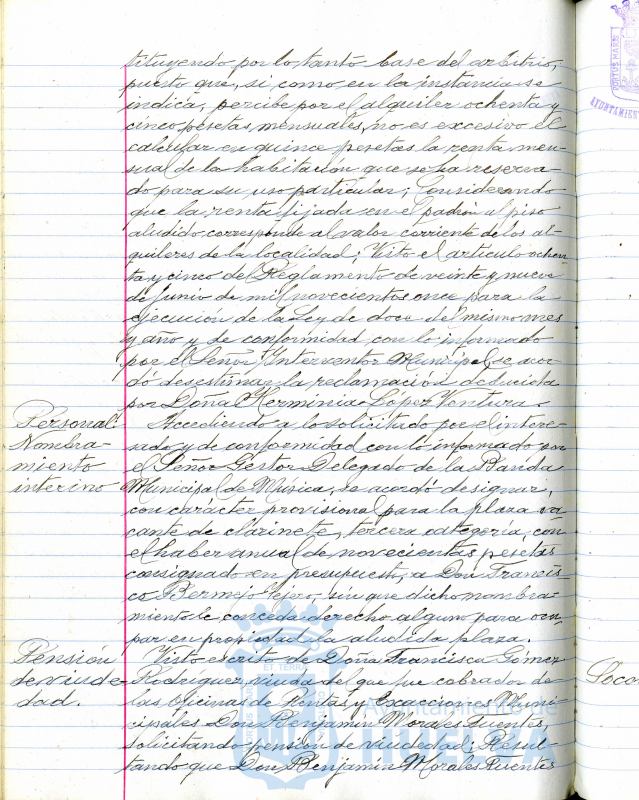 tituyendo por lo tanto base del arbitrio,
puesto que, si como en la instancia se
indica, percibe por el alquiler ochenta y
cinco pesetas mensuales, no es excesivo el
calcular en quince pesetas la renta men-
sual de la habitación que se ha reserva-
do para su uso particular; Considerando
que la renta fijada en el padrón al piso
aludido corresponde al valor corriente de los al-
quileres de la localidad; Visto el articulo ochen-
ta y cinco del Reglamento de veinte y nueve
de Junio de mil novecientos once para la
ejecución de la Ley de doce del mismo mes
y año y de conformidad con lo informado
por el Señor Interventor Municipal, se acor-
dó desestimar la reclamación deducida
por Doña Herminia López Ventura.
Personal:
Nombra-
miento
interino
Accediendo a lo solicitado por el intere-
sado y de conformidad con lo informado por
el Señor Gestor Delegado de la Banda
Municipal de Música, se acordó designar,
con carácter provisional para la plaza va-
cante de clarinete, tercera categoría, con
el haber anual de novecientas pesetas
consignado en presupuesto, a Don Francis-
co Bermejo Tejero, sin que dicho nombra-
miento le conceda derecho alguno para ocu-
par en propiedad la aludida plaza.
Pensión
de viude-
dad.
Visto escrito de Doña Francisca Gómez
Rodríguez, viuda del que fue cobrador de
las Oficinas de Rentas y Exacciones Muni-
cipales Don Benjamin Morales Fuentes,
solicitando pensión de viudedad; Resul-
tando que Don Benjamin Morales Fuentes
Ayuntamiento de
HUELVA
PORTUS MARIS
AYUNTAMIENT
Soco